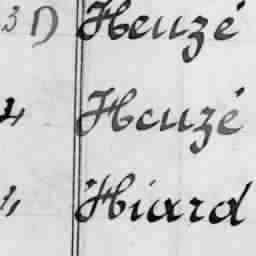 3 D Heuzé
4 Heuzé
4 Hiard